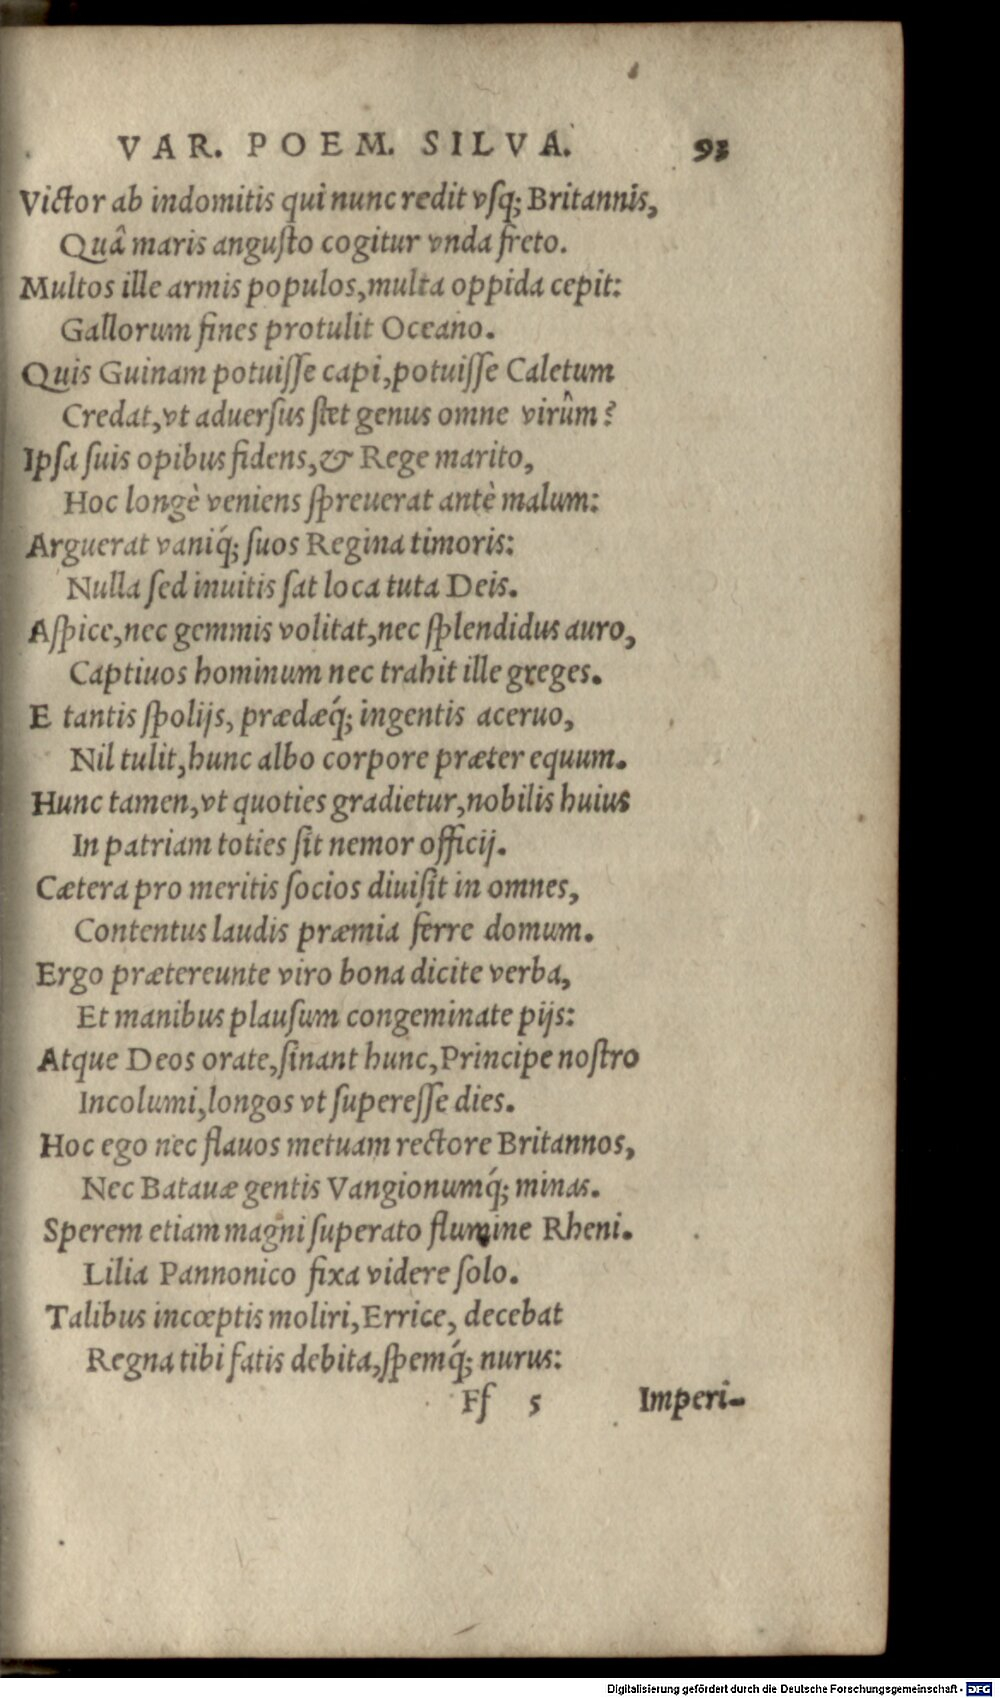 VAR. POEM. SILVA. 93
Victor ab indomitis qui nunc redit vsq; Britannis,
Quâ maris angusto cogitur vnda freto.
Multos ille armis populos, multa oppida cepit:
Gallorum fines protulit Oceano.
Quis Guinam potuisse capi, potuisse Caletum
Credat, vt aduersus stet genus omne virûm?
Ipsa suis opibus fidens, & Rege marito,
Hoc longè veniens spreuerat antè malum:
Arguerat vaniq́; suos Regina timoris:
Nulla sed inuitis sat loca tuta Deis.
Aspice, nec gemmis volitat, nec splendidus auro,
Captiuos hominum nec trahit ille greges.
E tantis spolijs, prædæq́; ingentis aceruo,
Nil tulit, hunc albo corpore præter equum.
Hunc tamen, vt quoties gradietur, nobilis huius
In patriam toties sit nemor officij.
Cætera pro meritis socios diuisit in omnes,
Contentus laudis præmia ferre domum.
Ergo prætereunte viro bona dicite verba,
Et manibus plausum congeminate pijs:
Atque Deos orate, sinant hunc, Principe nostro
Incolumi, longos vt superesse dies.
Hoc ego nec flauos metuam rectore Britannos,
Nec Batauæ gentis Vangionumq́; minas.
Sperem etiam magni superato flumine Rheni.
Lilia Pannonico fixa videre solo.
Talibus incœptis moliri, Errice, decebat
Regna tibi fatis debita, spemq́; nurus:
Ff 5 Imperi-
Digitalisierung gefördert durch die Deutsche Forschungsgemeinschaft - DFG